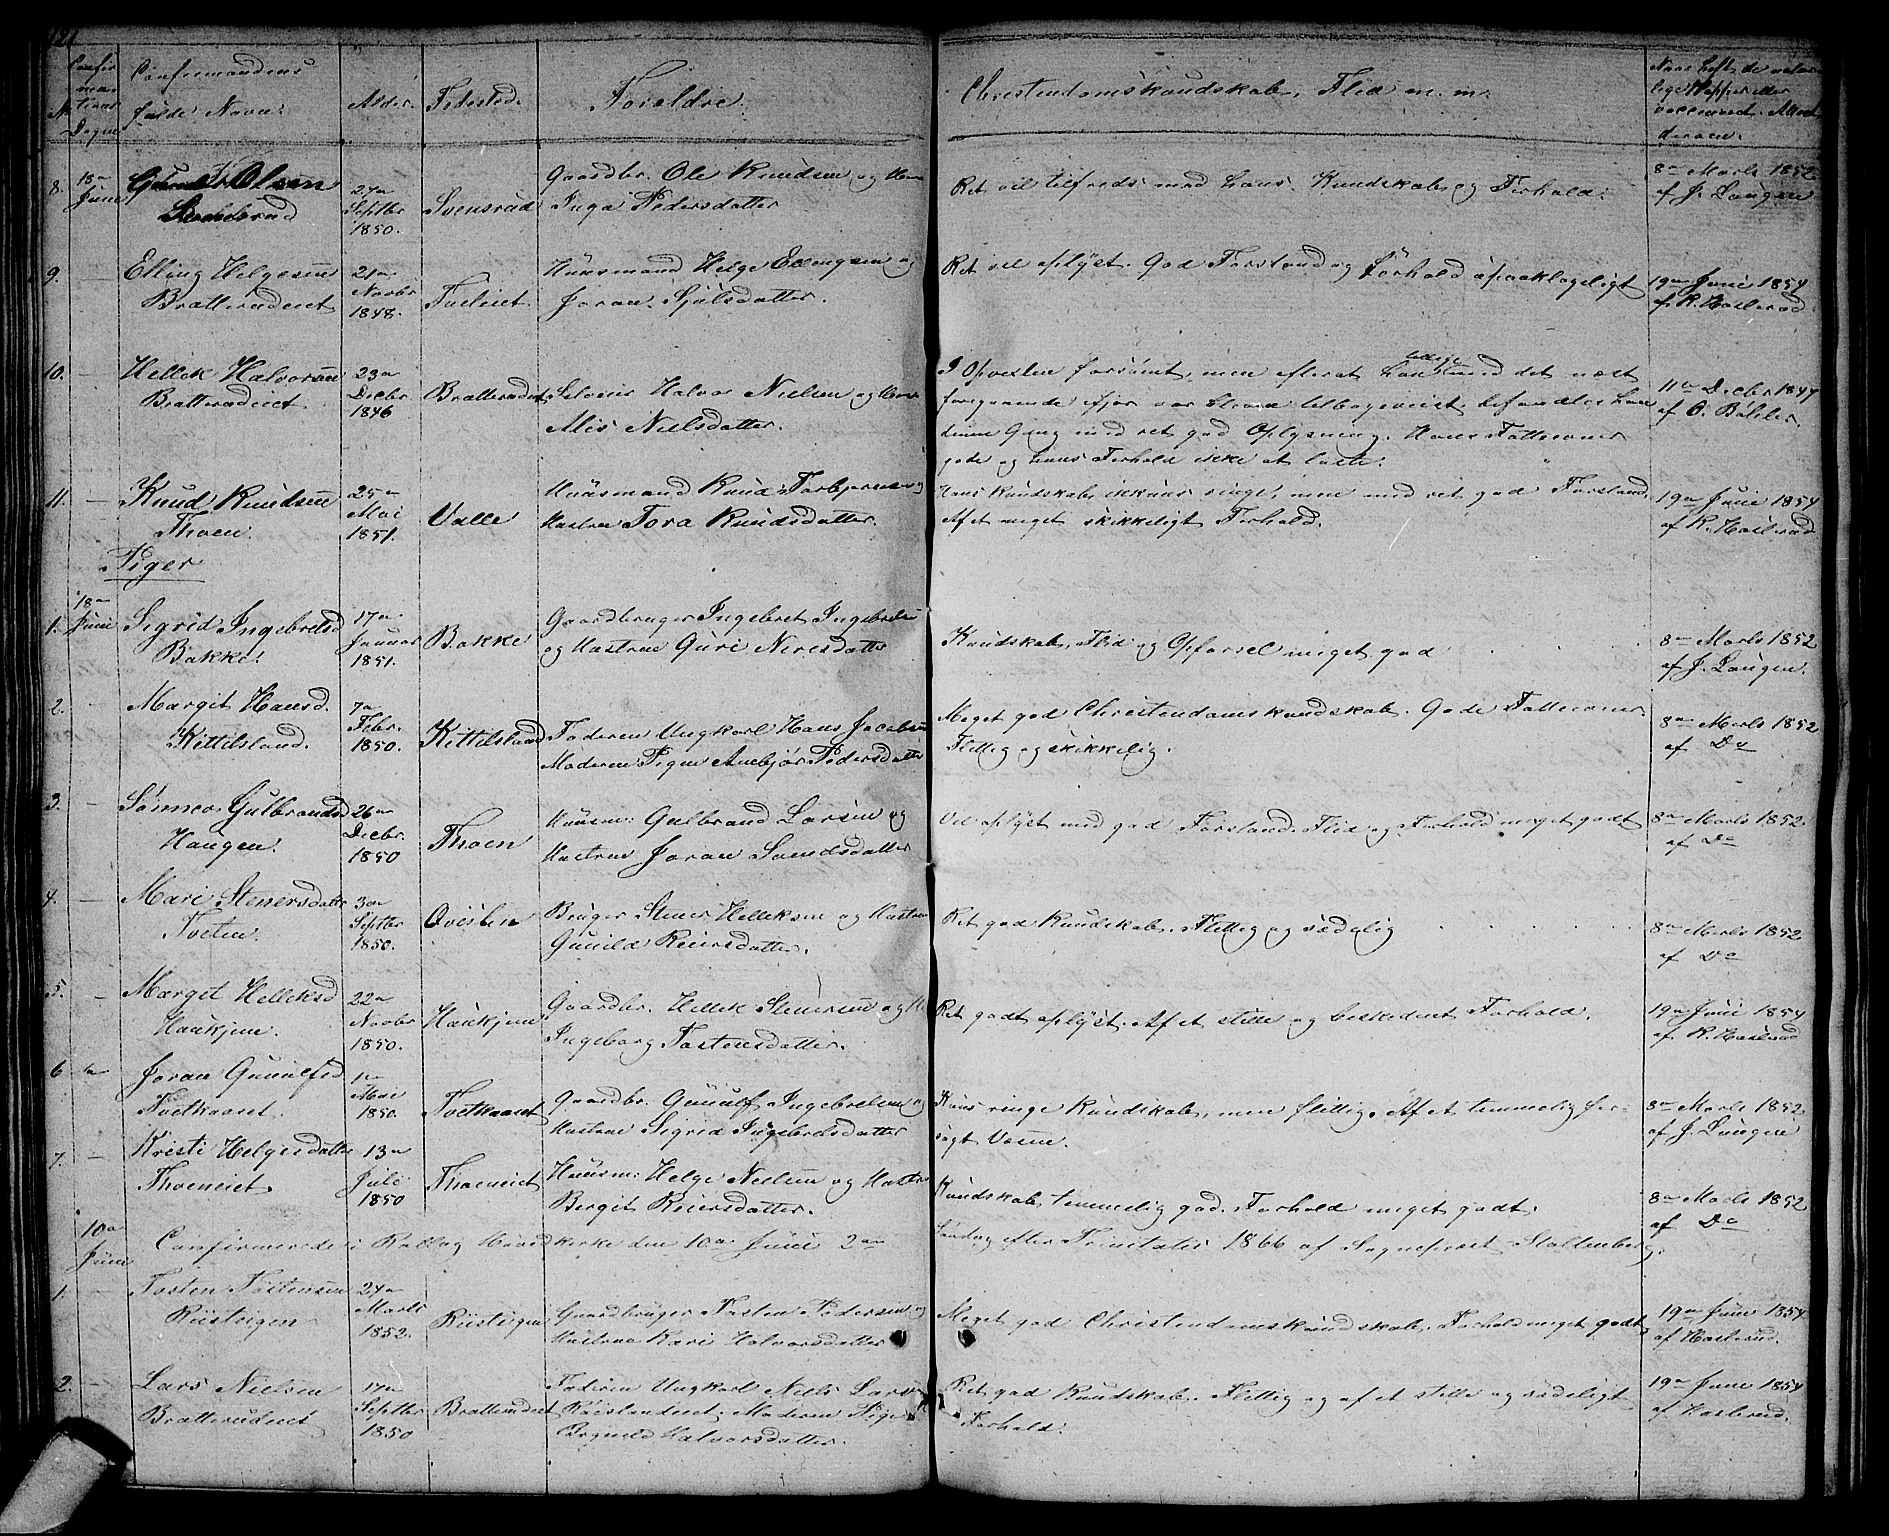 121
Confir
ma
tions
No Dagen
Confirmandens
fulde Navn.
Alder.
Fødested.
Forældre.
Christendomskundskab, Flid m. m.
Naar havt de natur
lige Kopper eller
vaccineret. Attest
derom.
8. 18de Juni
Olsen
27de Septbr 1850.
Svensrud
Gaardbr. Ole Knudsen og
Inga Pedersdatter
Ret vel tilfreds med hans Kundskab og Forhold.
8de Marts 1852
af J. Laugen
9. —
Elling Helgesen
Bratterudeiet
21de Novbr 1848.
Tveteiet.
Huusmand Helge Ellingsen og
Joran Sjulsdatter.
Ret vel oplyst. God Forstand og Forhold upaaklageligt
19de Juni 1854
af K. Haslerud
10. —
Hellek Halvorsen
Bratterudeiet
23de Decbr 1846
Bratterudeiet
Halvor Nielsen og
Nielsdatter.
I Opvexten forsømt, men efterat han tillige med det næst
foregaaende ifjor var bleven tilbageviist befandtes han
denne Gang med ret god Oplysning. Hans Fatteevner
gode og hans Forhold ikke at laste.
11te Decbr 1847
af O. Bøhler.
11. —
Knud Knudsen
Thoen.
25de Mai 1851.
Valle
Huusmand Knud Torbjørnsen og
Hustrue Tora Knudsdatter.
Hans Kundskab ikkuns ringe, men med ret god Forstand.
Af et meget skikkeligt Forhold.
19de Juni 1854
af K. Haslerud
Piger
1. 18de Juni
Sigrid Ingebretsd
Bakke.
17de Januar 1851.
Bakke
Gaardbruger Ingebret Ingebretsen
og Hustrue Guri Nirisdatter
Kundskab, Flid og Opførsel meget god
8de Marts 1852
af J. Laugen.
2. —
Margit Hansd.
Kittilsland.
7de Febr. 1850.
Kittilsland
Faderen Ungkarl Hans Jacobsen
Moderen Pigen Anebjør Pedersdatter
Meget god Christendomskundskab. Gode Fatteevner
Flittig og skikkelig.
8de Marts 1852
af Do
3. —
Sønnev Gulbrandsd
Haugen.
26de Decbr. 1850
Thoen
Huusm: Gulbrand Larsen og
Hustrue Joran Svendsdatter
Vel oplyst med god Forstand. Flid og Forhold meget godt
8de Marts 1852.
af Do
4. —
Mari Stenersdatter
Tveten.
3de Septbr 1850.
Qvisten
Bruger Stener Helleksen og Hustrue
Gunild Reiersdatter.
Ret god Kundskab. Flittig og sædelig
8de Marts 1852
af Do
5. —
Marget Helleksd
Haukjem.
22de Novbr 1850.
Haukjem
Gaardbr. Hellek Stenersen og H.
Ingeborg Tostensdatter.
Ret godt oplyst. Af et stille og beskedent Forhold.
19de Juni 1854
af K. Haslerud
6
Joran Gunulfsd
Tvetkaaset.
1te Mai 1850.
Tvetkaaset
Gaardbr. Gunulf Ingebretsen og
Hustrue Sigrid Ingebretsdatter
Kuns ringe Kundskab, men flittig. Af et temmelig for-
sagt Væsen.
8de Marts 1852
af J. Laugen
7. —
Kristi Helgesdatter
Thoeneiet.
13de Juli 1850
Thoeneiet
Huusm: Helge Nielsen og Hustru
Bergit Reiersdatter.
Kundskab temmelig god. Forhold meget godt.
8de Marts 1852
af Do
10de Juni
Confirmerede i Rollag Hovedkirke den 10de Juni 2den
Søndag efter Trinitatis 1866 af Sognepræst Stoltenberg.
1. —
Tosten Tostensen
Rusteigen
24de Marts 1852.
Rusteigen
Gaardbruger Tosten Pedersen og
Hustrue Kari Halvorsdatter
Meget god Christendomskundskab. Forhold meget godt
19de Juni 1854
af Haslerud.
2. —
Lars Nielsen
Bratterudeiet
17de Septbr 1850
Bratterudeiet
Faderen Ungkarl Niels Larsen
Moderen Pigen
Halvorsdatter.
Ret god Kundskab. Flittig og af et stille og sædeligt
Forhold.
19de Juni 1854
af Haslerud.